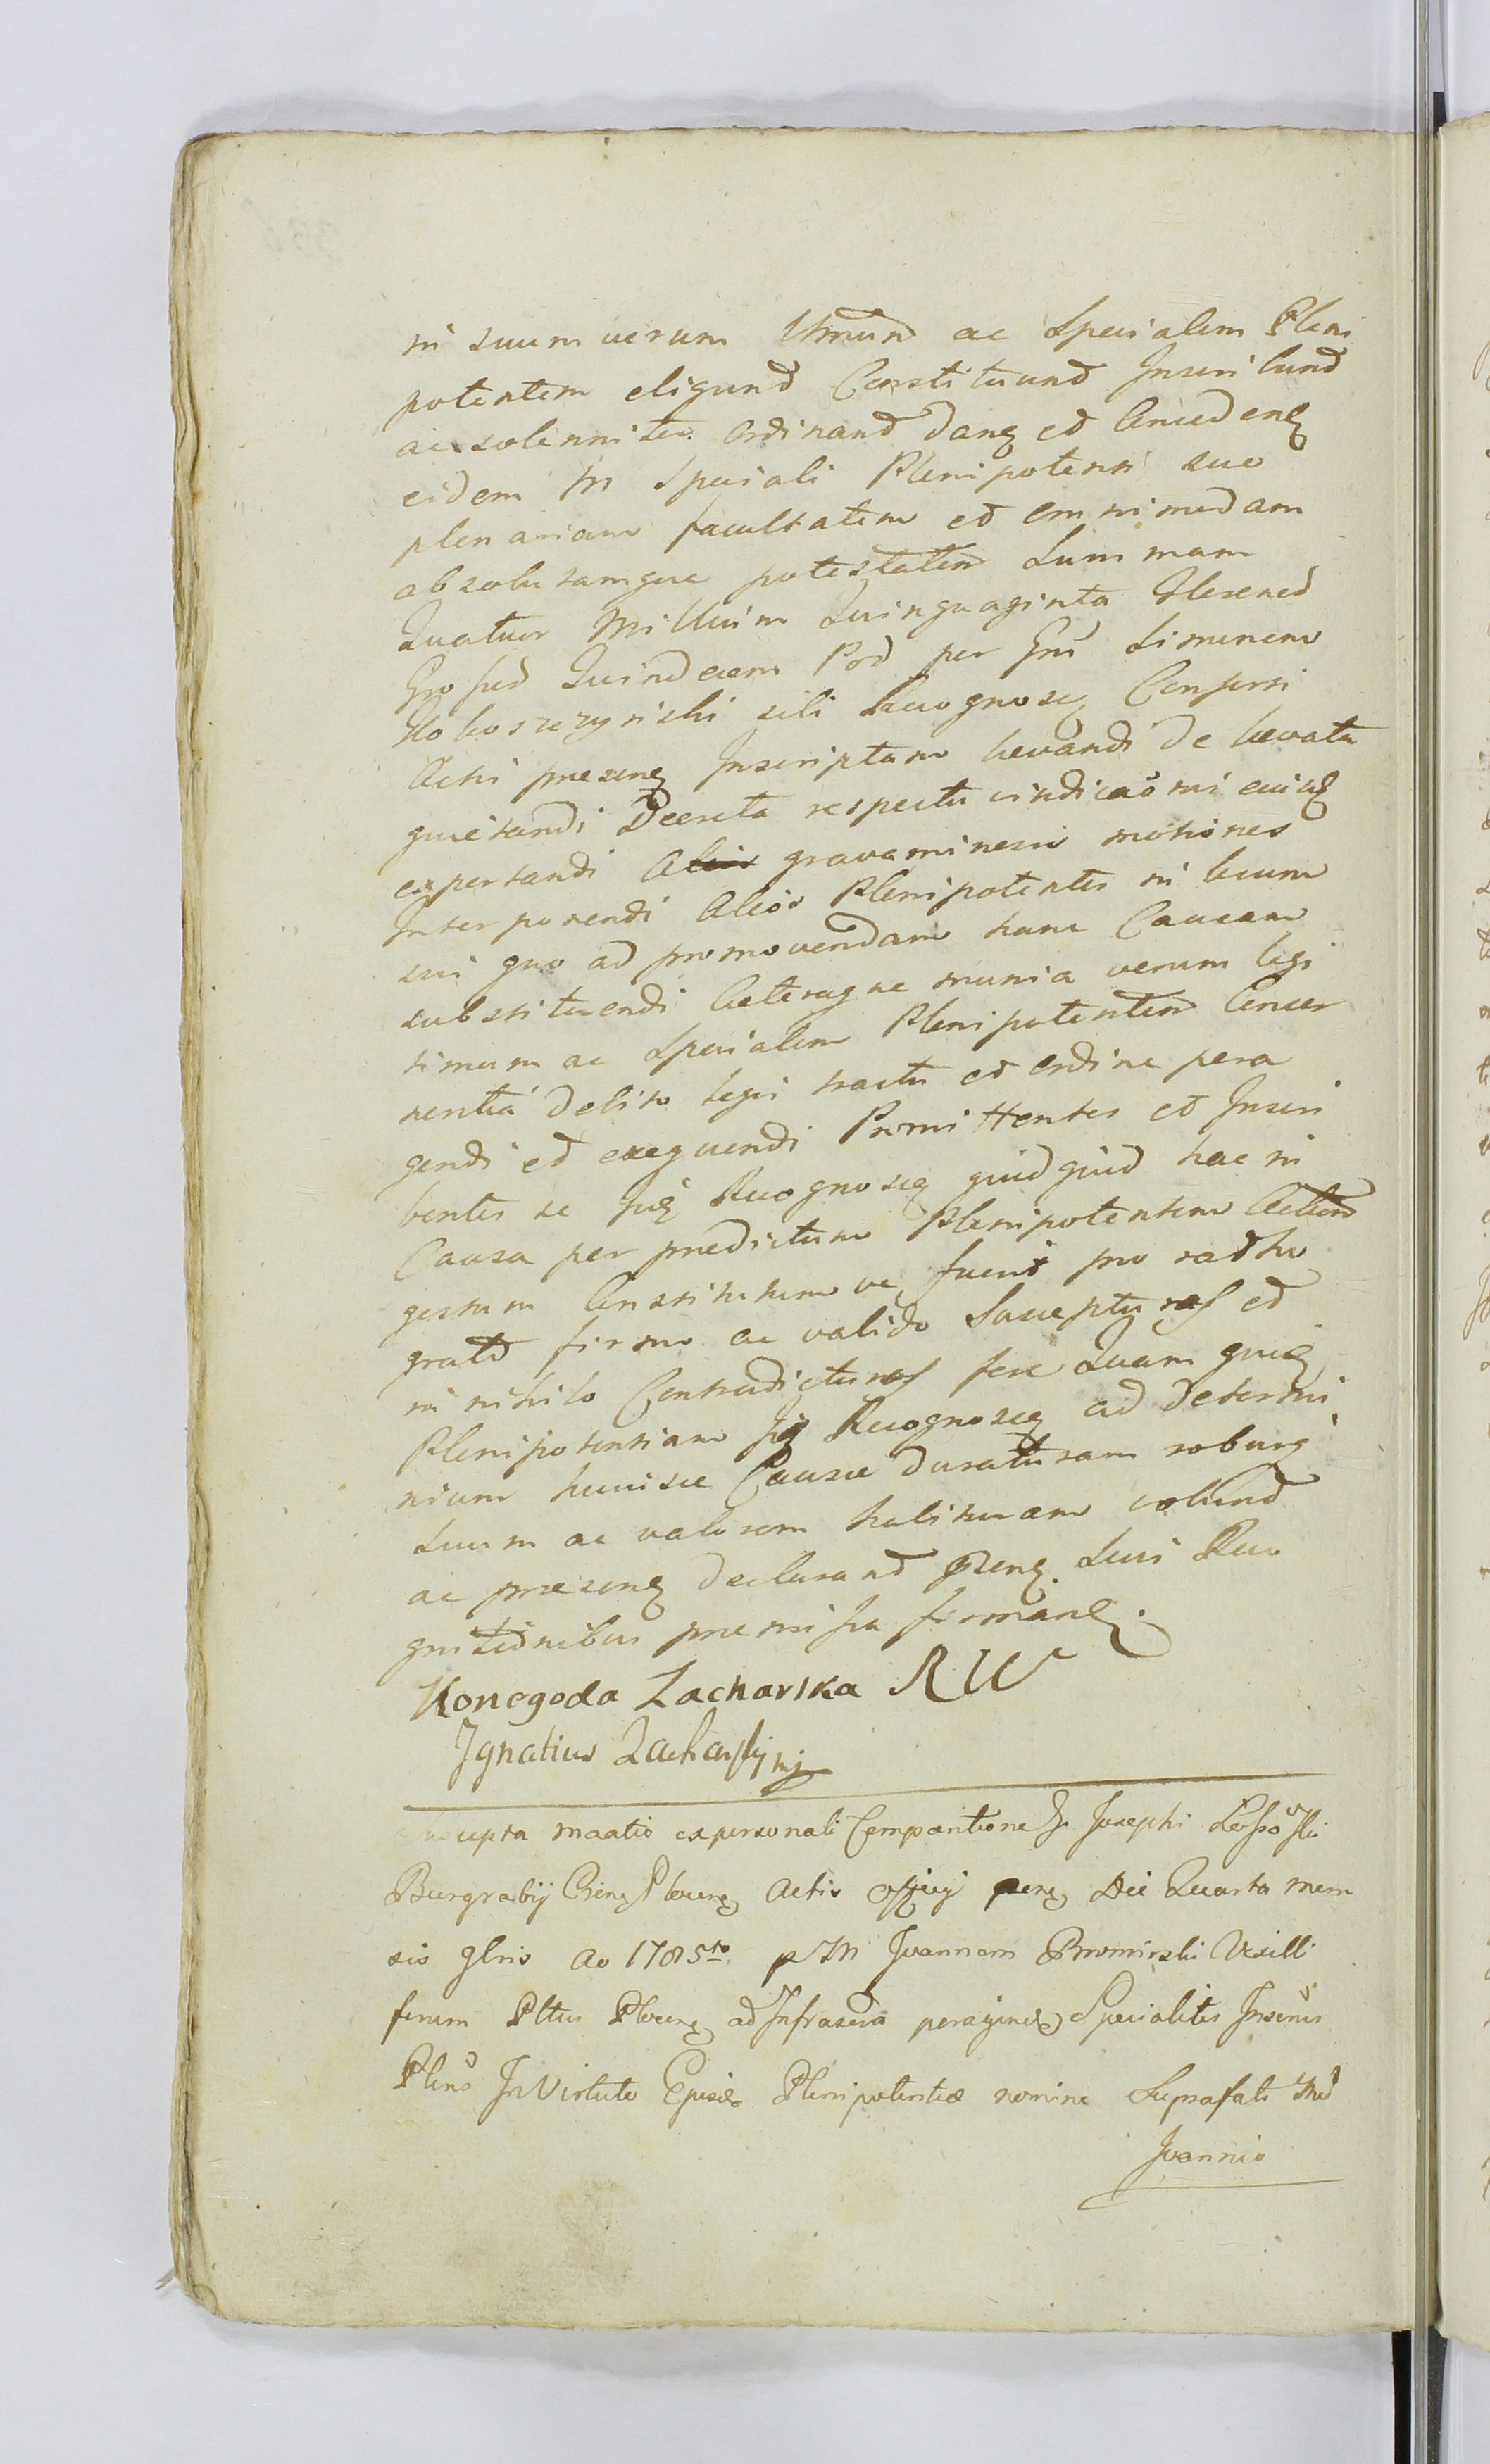 in suum verum Umund ac Specialem Pleni
potentem eligund Constituund Inscribund
ac solenniter Ordinand danq et Concedenq
eidem M Speciali Plenipotenti suo
plenariam facultatem et omnimodam
absolutamque potestatem Summam
Quatuor Millium Quinquaginta Florenod
Grossod Quindecem Pod per Gnu Simonem
Koboszczynski sibi Recognosc Consorti
Actis presenq Inscriptam levandi De levata
quietandi Decreta respectu vindicaoni eiusq
expertandi gravaminesve motiones
Interponendi Alios Plenipotentes in locum
sui quo ad promovendam hanc Causam
substituendi Caeteraque munia verum legi
timum ac Specialem Plenipotentem Concer
nentia debito legis tractu et ordine pera
gendi et exequendi Promittentes et Inscri
bentes se Recognoscq quidquid hac in
Causa per praedictum Plenipotentem Actum
gestum Constitutum ve fuerit pro ratho
grato firmo ac valido Suscepturos et
in nihilo Contradicturos fore Quam quiq
Plenipotentiam Recognoscq ad determi
nium huiusce Causae duraturam roburq
Suum ac valorem habituram volund
ac praesenq declarand Psenq Suis Reco
gnitionibus praemissa firmanq.
Konegoda Zacharska R W
Ignatius Zacharskj mj
Suscepta maatio ex personali Comparitione G Josephi
Burgrabij Csenq Plocenq Actis officij psenq Die Quarta men
sis 9bris Ao 1785to p M Joannem Bromirski Vexilli
ferum Pltus Plocenq ad Infrascra peragendq Specialiter Inscriu
Plens In Virtute Ejusdq Plenipotentiae nomine Suprafati Md
Joannis